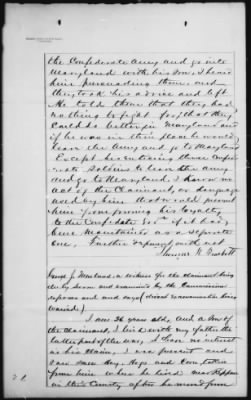 the Confederate Army and go into
Maryland with his son, I heard
him persuading them, and
they took his advice and left
He told them that they had
nothing to fight for, that they
could do better in Maryland and
if he was in their place he would
leave the Army and go to Maryland
Except his enticing these Confed-
erate Soldiers to leave the Army
and go to Maryland, I know no
act of the Claimant, or language
used by him that would prevent
him from proving his loyalty
to the Confederate Govt if it had
been maintained as a separate
one. Further deponent saith not
Thomas
George J. a witness for the claimant being
duly sworn and examined by the Commissioner
deposes and says (direct examination being
waived.)
I am 26 years old, and a Son of
the Claimant, I lived with my father the
latter part of the War, I have no interest
in his Claim, I was present and
saw Hay, Hogs and Corn taken
from him when he lived near
in this County, after he moved from